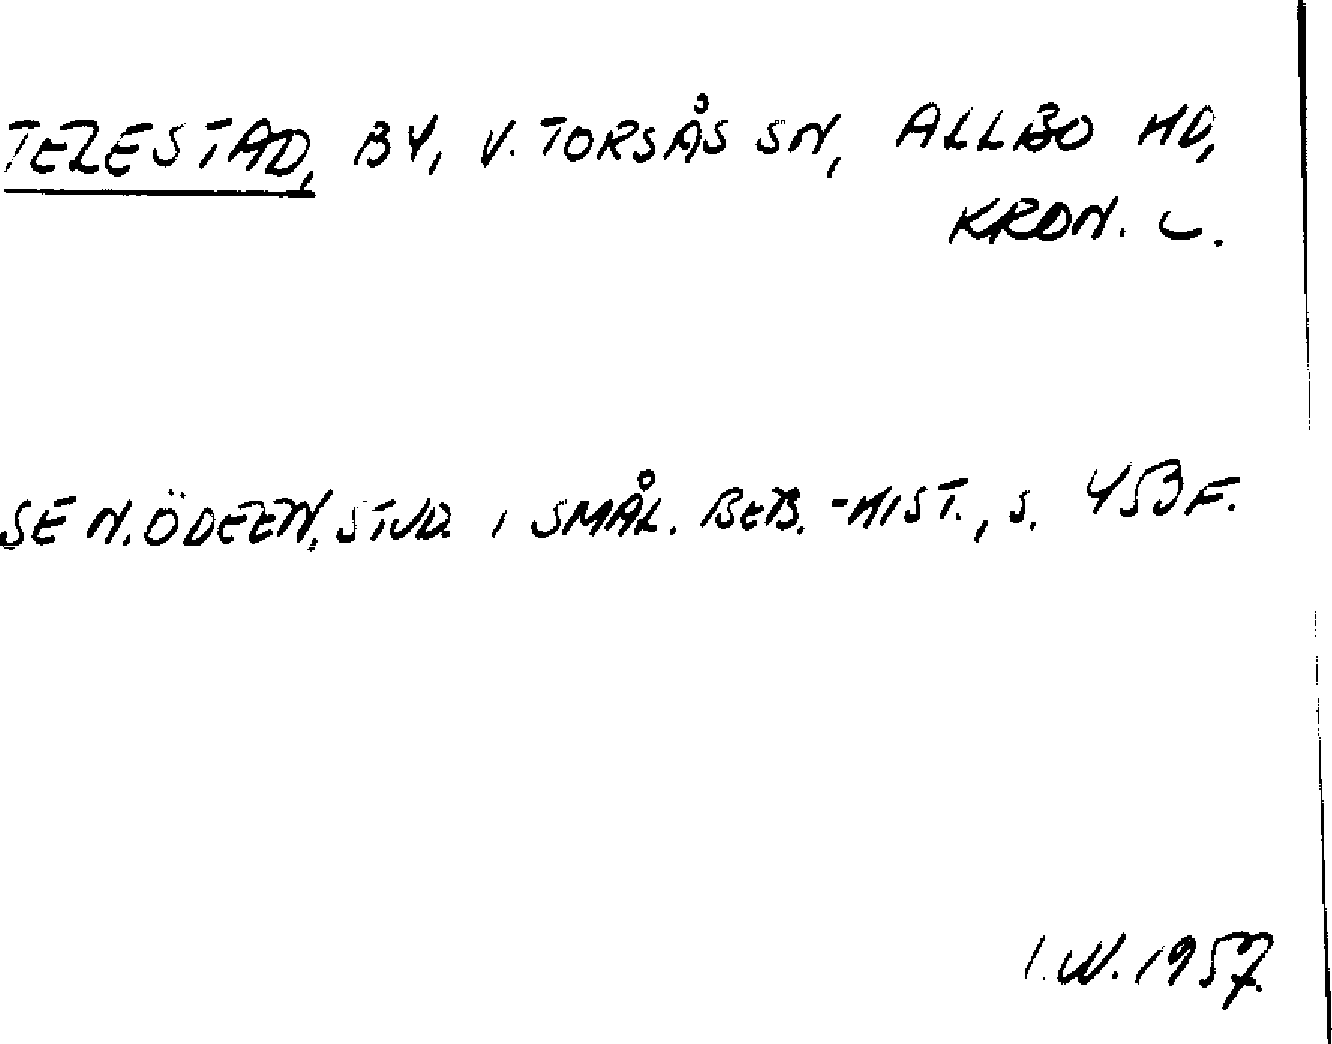 TELESTAD, BY, V. TORSÅS SN, ALLBO HD,
KRON. L.
SE N. ÖDEEN, STUD. I SMÅL. BEB.-HIST., S. 453 F.
I.W. 1957.